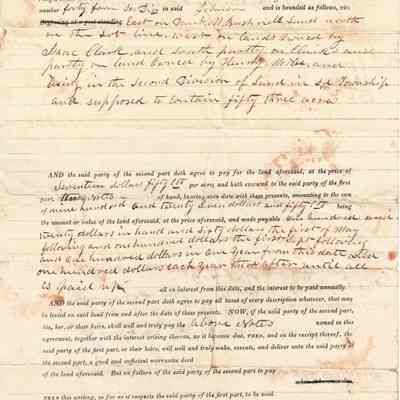 number forty four in said Lebanon and is bounded as follows, viz:
East on Bushnell Land north
on the Lot line, west on lands owned by
Isaac Clark, and South partly on Clark and
partly on land owned by
being in the Second Division of Land in sd Township
and supposed to contain fifty three acres
AND the said party of the second part doth agree to pay for the land aforesaid, at the price of
Seventeen dollars fifty Cts per acre, and hath executed to the said party of the first
Notes of hand, bearing even date with these presents, amounting to the sum
of nine hundred and twenty Seven dollars and fifty Cts being
the amount or value of the land aforesaid, at the price aforesaid, and made payable One hundred and
twenty dollars in hand and Sixty dollars the first of May
following and one hundred dollars the first Sept following
and One hundred dollars in One Year from this date and
one hundred dollars each year after until all
is paid up all on interest from this date, and the interest to be paid annually.
AND the said party of the second part doth agree to pay all taxes of every description whatever, that may
be levied on said land from and after the date of these presents. NOW, if the said party of the second part,
his, her, or their heirs, shall well and truly pay the above Notes named in this
agreement, together with the interest arising thereon, as it becomes due, THEN, and on the receipt thereof, the
said party of the first part, or their heirs, will well and truly make, execute, and deliver unto the said party of
the second part, a good and sufficient warrantee deed
of the land aforesaid. But on failure of the said party of the second part to pay
THEN this writing, so far as it respects the said party of the first part, to be void.